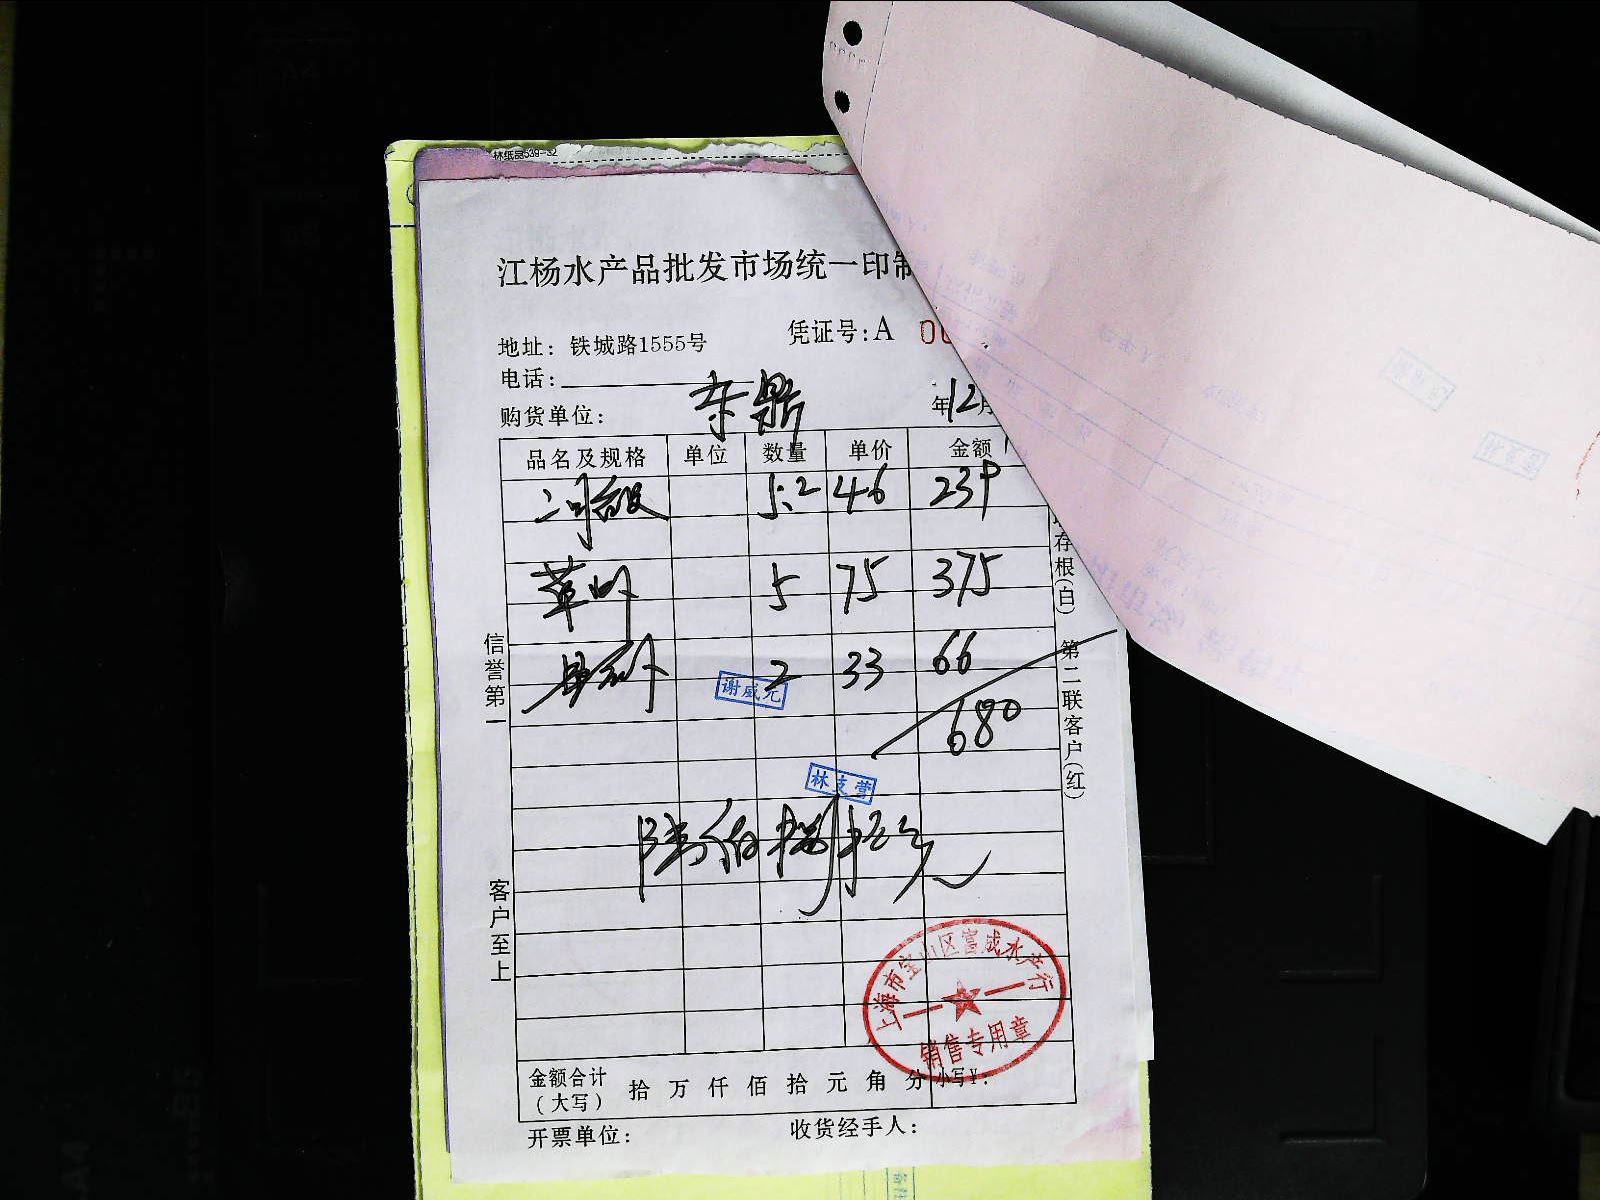 林纸品539-32
江杨水产品批发市场统一印制
地址: 铁城路1555号
凭证号: A 00
电话:
购货单位: 东鼎
年12月
品名及规格 单位 数量 单价 金额
河 5.2 46 239
草虾 5 75 375
2 33 66
谢威元
680
林支营
陆佰捌拾元
信誉第一
客户至上
存根(白) 第二联客户(红)
上海市宝山区富成水产行
销售专用章
金额合计(大写) 拾 万 仟 佰 拾 元 角 分 小写¥:
开票单位:
收货经手人: